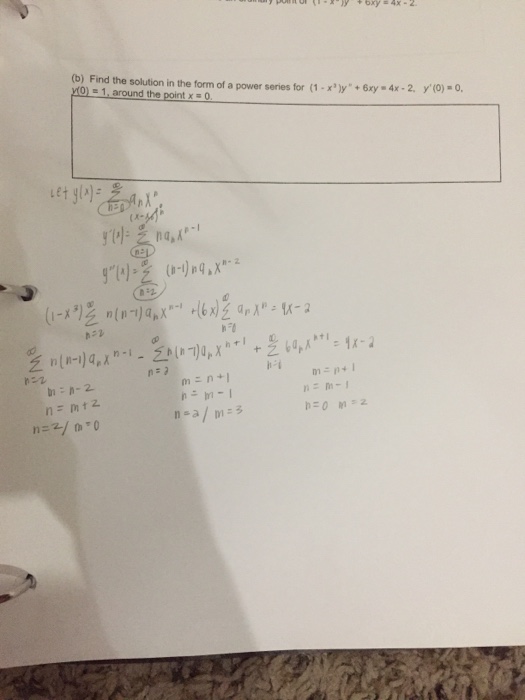 (1 - x³)y" + 6xy = 4x - 2.
(b) Find the solution in the form of a power series for (1 - x³)y" + 6xy = 4x - 2, y'(0) = 0,
y(0) = 1, around the point x = 0.
Let y(x) = ∞ Σ n=0 aₙxⁿ
y'(x) = ∞ Σ n=1 naₙxⁿ⁻¹
y"(x) = ∞ Σ n=2 (n-1)naₙxⁿ⁻²
(1-x³) ∞ Σ n=2 n(n-1)aₙxⁿ⁻¹ + (6x) ∞ Σ n=0 aₙxⁿ = 4x-2
∞ Σ n=2 n(n-1)aₙxⁿ⁻¹ - ∞ Σ n=2 n(n-1)aₙxⁿ⁺¹ + ∞ Σ 6aₙxⁿ⁺¹ = 4x-2
m = n-2 m = n+1 m = n+1
n = m+2 n = m-1 n = m-1
n=2/ m=0 n=2/ m=3 n=0 m=2